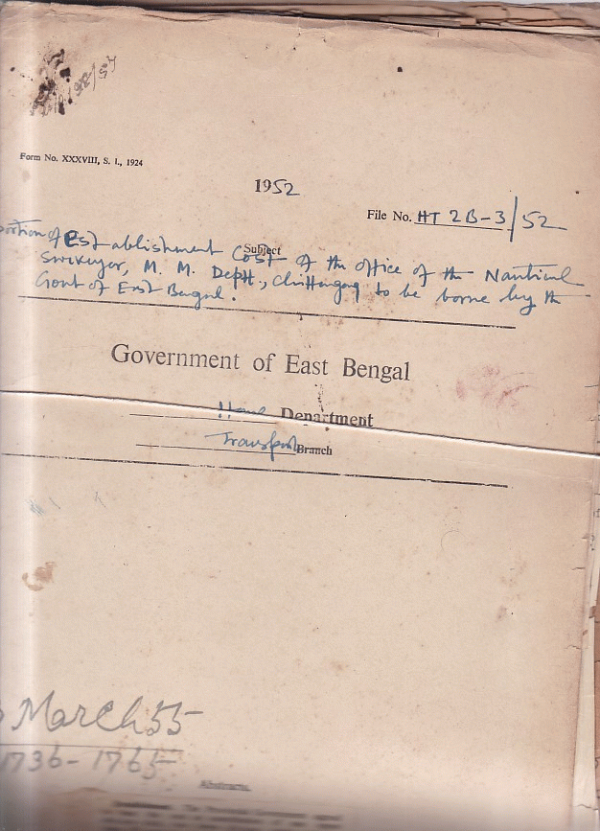 Form No. XXXVIII, S. I., 1924
1952
File No. HT 2B-3/52
Subject
portion of Establishment Cost of the office of the Nautical
Surveyor, M. M. Deptt., Chittagong to be borne by the
Govt of East Bengal.
Government of East Bengal
Home Department
Transport Branch
March 55
1736-1765
Abstracts.